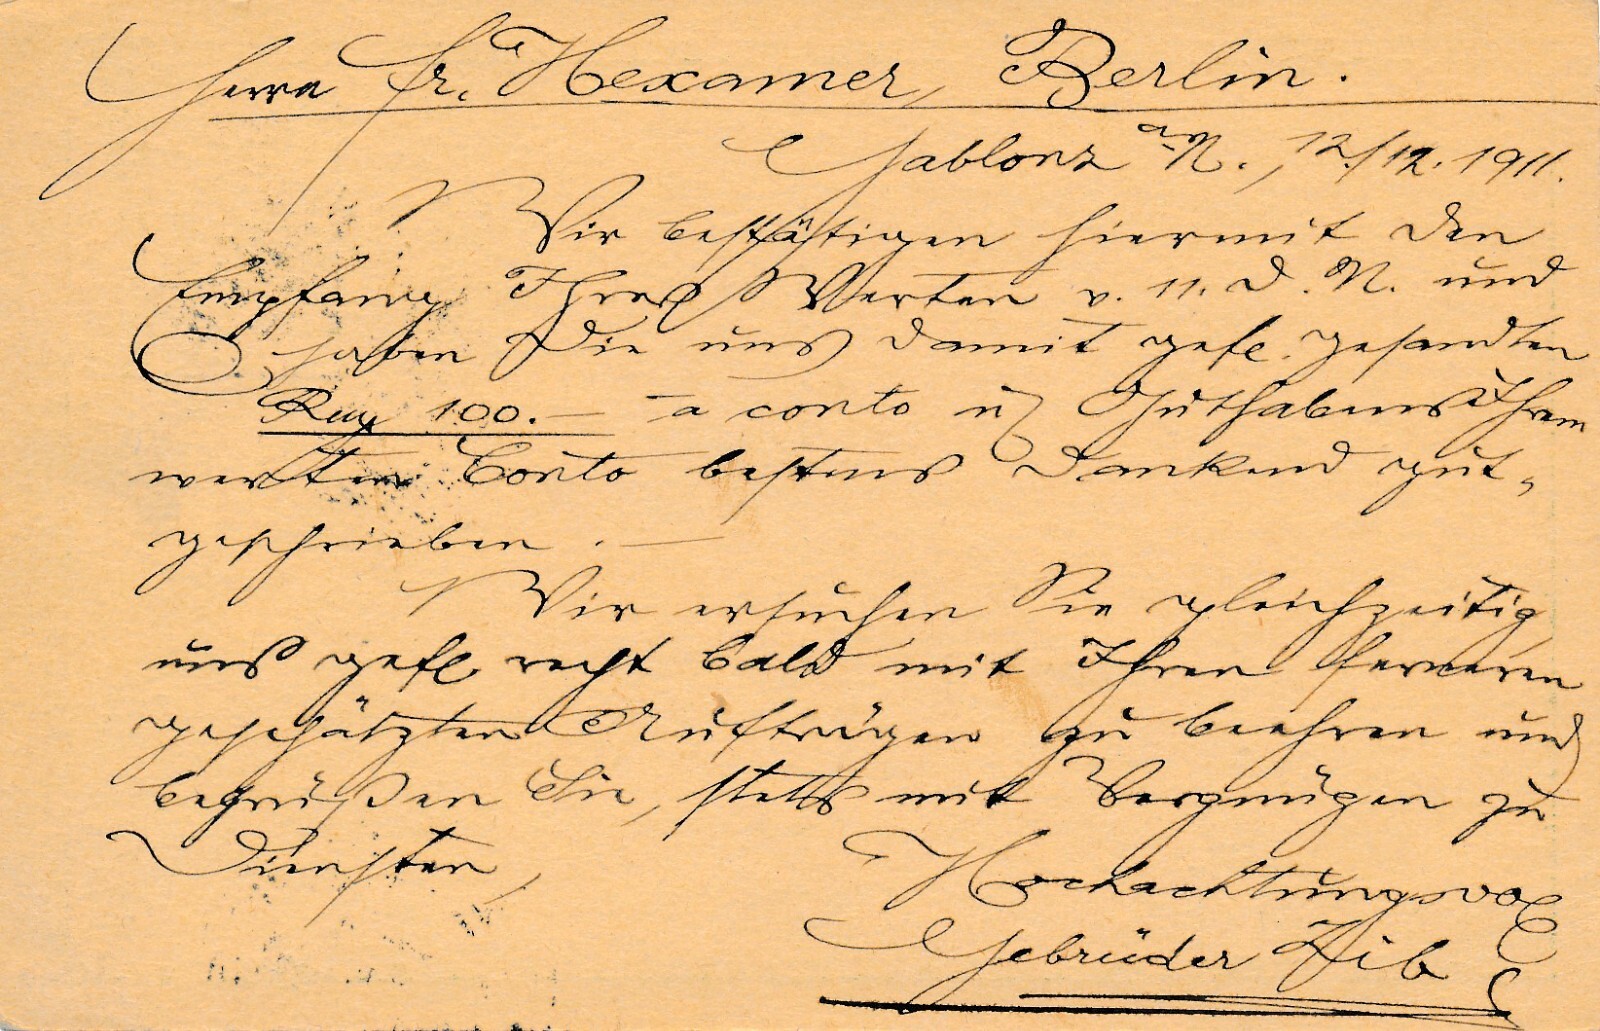 Herrn Fr. Hexamer, Berlin.
Gablonz a/N., 12./12. 1911.
Wir bestätigen hiermit den
Empfang Ihres Werten v. 11. d. M. und
haben die uns damit gefl. gesandten
100.— a conto u. Guthabens Ihrem
werten Conto bestens dankend gut-
geschrieben. —
Wir ersuchen Sie gleichzeitig,
uns gefl. recht bald mit Ihren ferneren
geschätzten Aufträgen zu beehren und
begrüßen Sie, stets mit Vergnügen zu
Diensten,
Hochachtungsvoll
Gebrüder